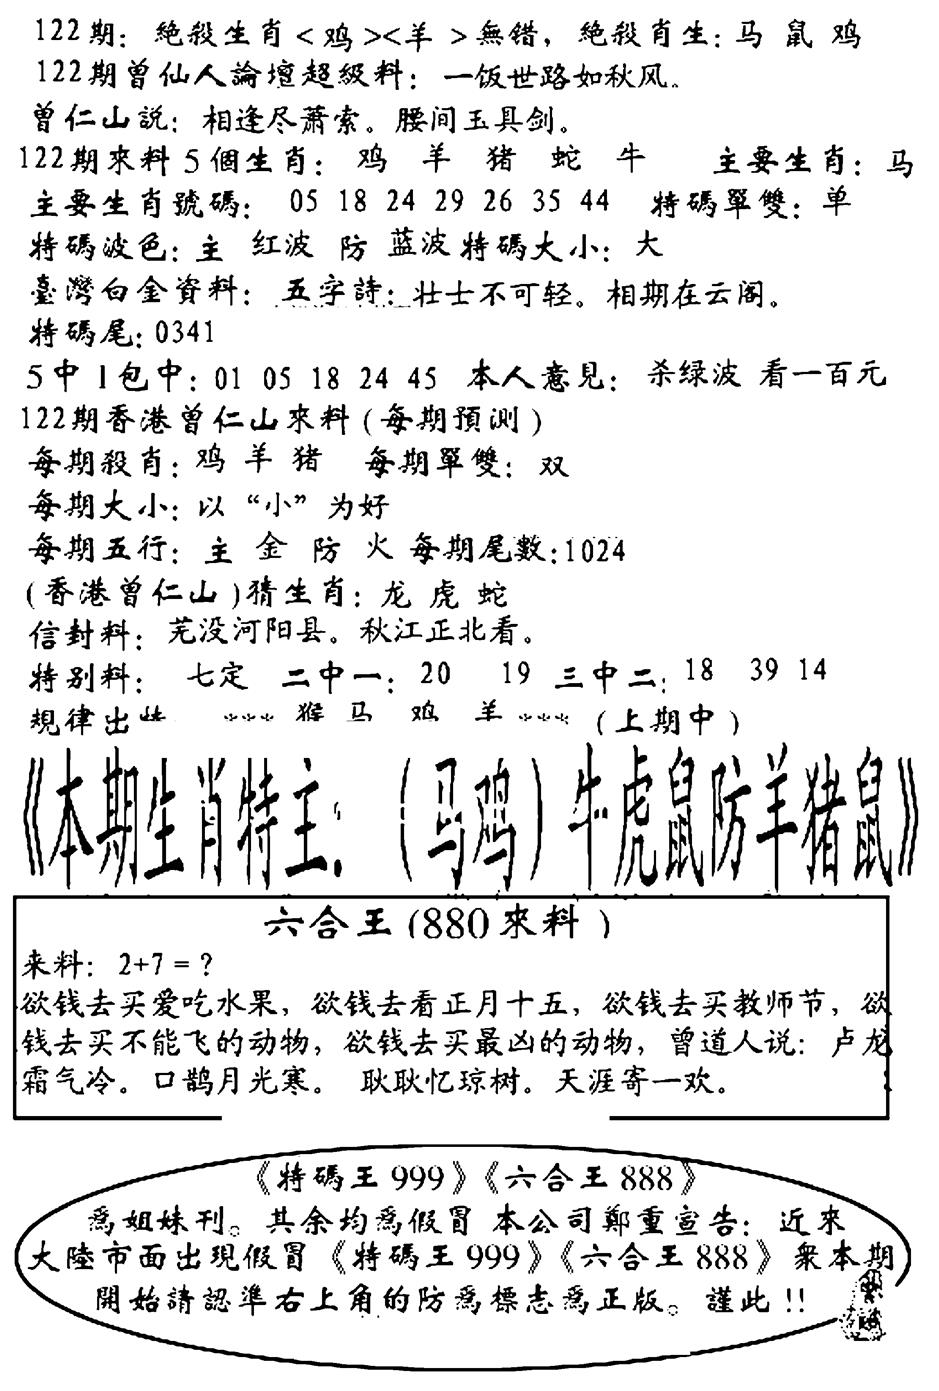 122期：絶殺生肖<鸡><羊 >無錯，絶殺肖生：马 鼠 鸡
122期曾仙人論壇超級料：一饭世路如秋风。
曾仁山説：相逢尽萧索。腰间玉具剑。
122期來料5個生肖：鸡 羊 猪 蛇 牛 主要生肖：马
主要生肖號碼：05 18 24 29 26 35 44 特碼單雙：单
特碼波色：主 红波 防 蓝波 特碼大小：大
臺灣白金資料：五字詩：壮士不可轻。相期在云阁。
特碼尾：0341
5中1包中：01 05 18 24 45 本人意見：杀绿波 看一百元
122期香港曾仁山來料(每期預測)
每期殺肖：鸡 羊 猪 每期單雙：双
每期大小：以“小”为好
每期五行：主 金 防 火 每期尾數：1024
(香港曾仁山)猜生肖：龙 虎 蛇
信封料：芜没河阳县。秋江正北看。
特别料：七定 二中一：20 19 三中二：18 39 14
規律出特 *** 猴 马 鸡 羊 *** (上期中)
《本期生肖特主：(马鸡)牛虎鼠防羊猪鼠》
六合王(880來料)
来料：2+7=?
欲钱去买爱吃水果，欲钱去看正月十五，欲钱去买教师节，欲
钱去买不能飞的动物，欲钱去买最凶的动物，曾道人说：卢龙
霜气冷。口鹊月光寒。 耿耿忆琼树。天涯寄一欢。
《特碼王999》《六合王888》
爲姐妹刊。其余均爲假冒 本公司鄭重宣告：近來
大陸市面出現假冒《特碼王999》《六合王888》衆本期
開始請認準右上角的防爲標志爲正版。謹此!!